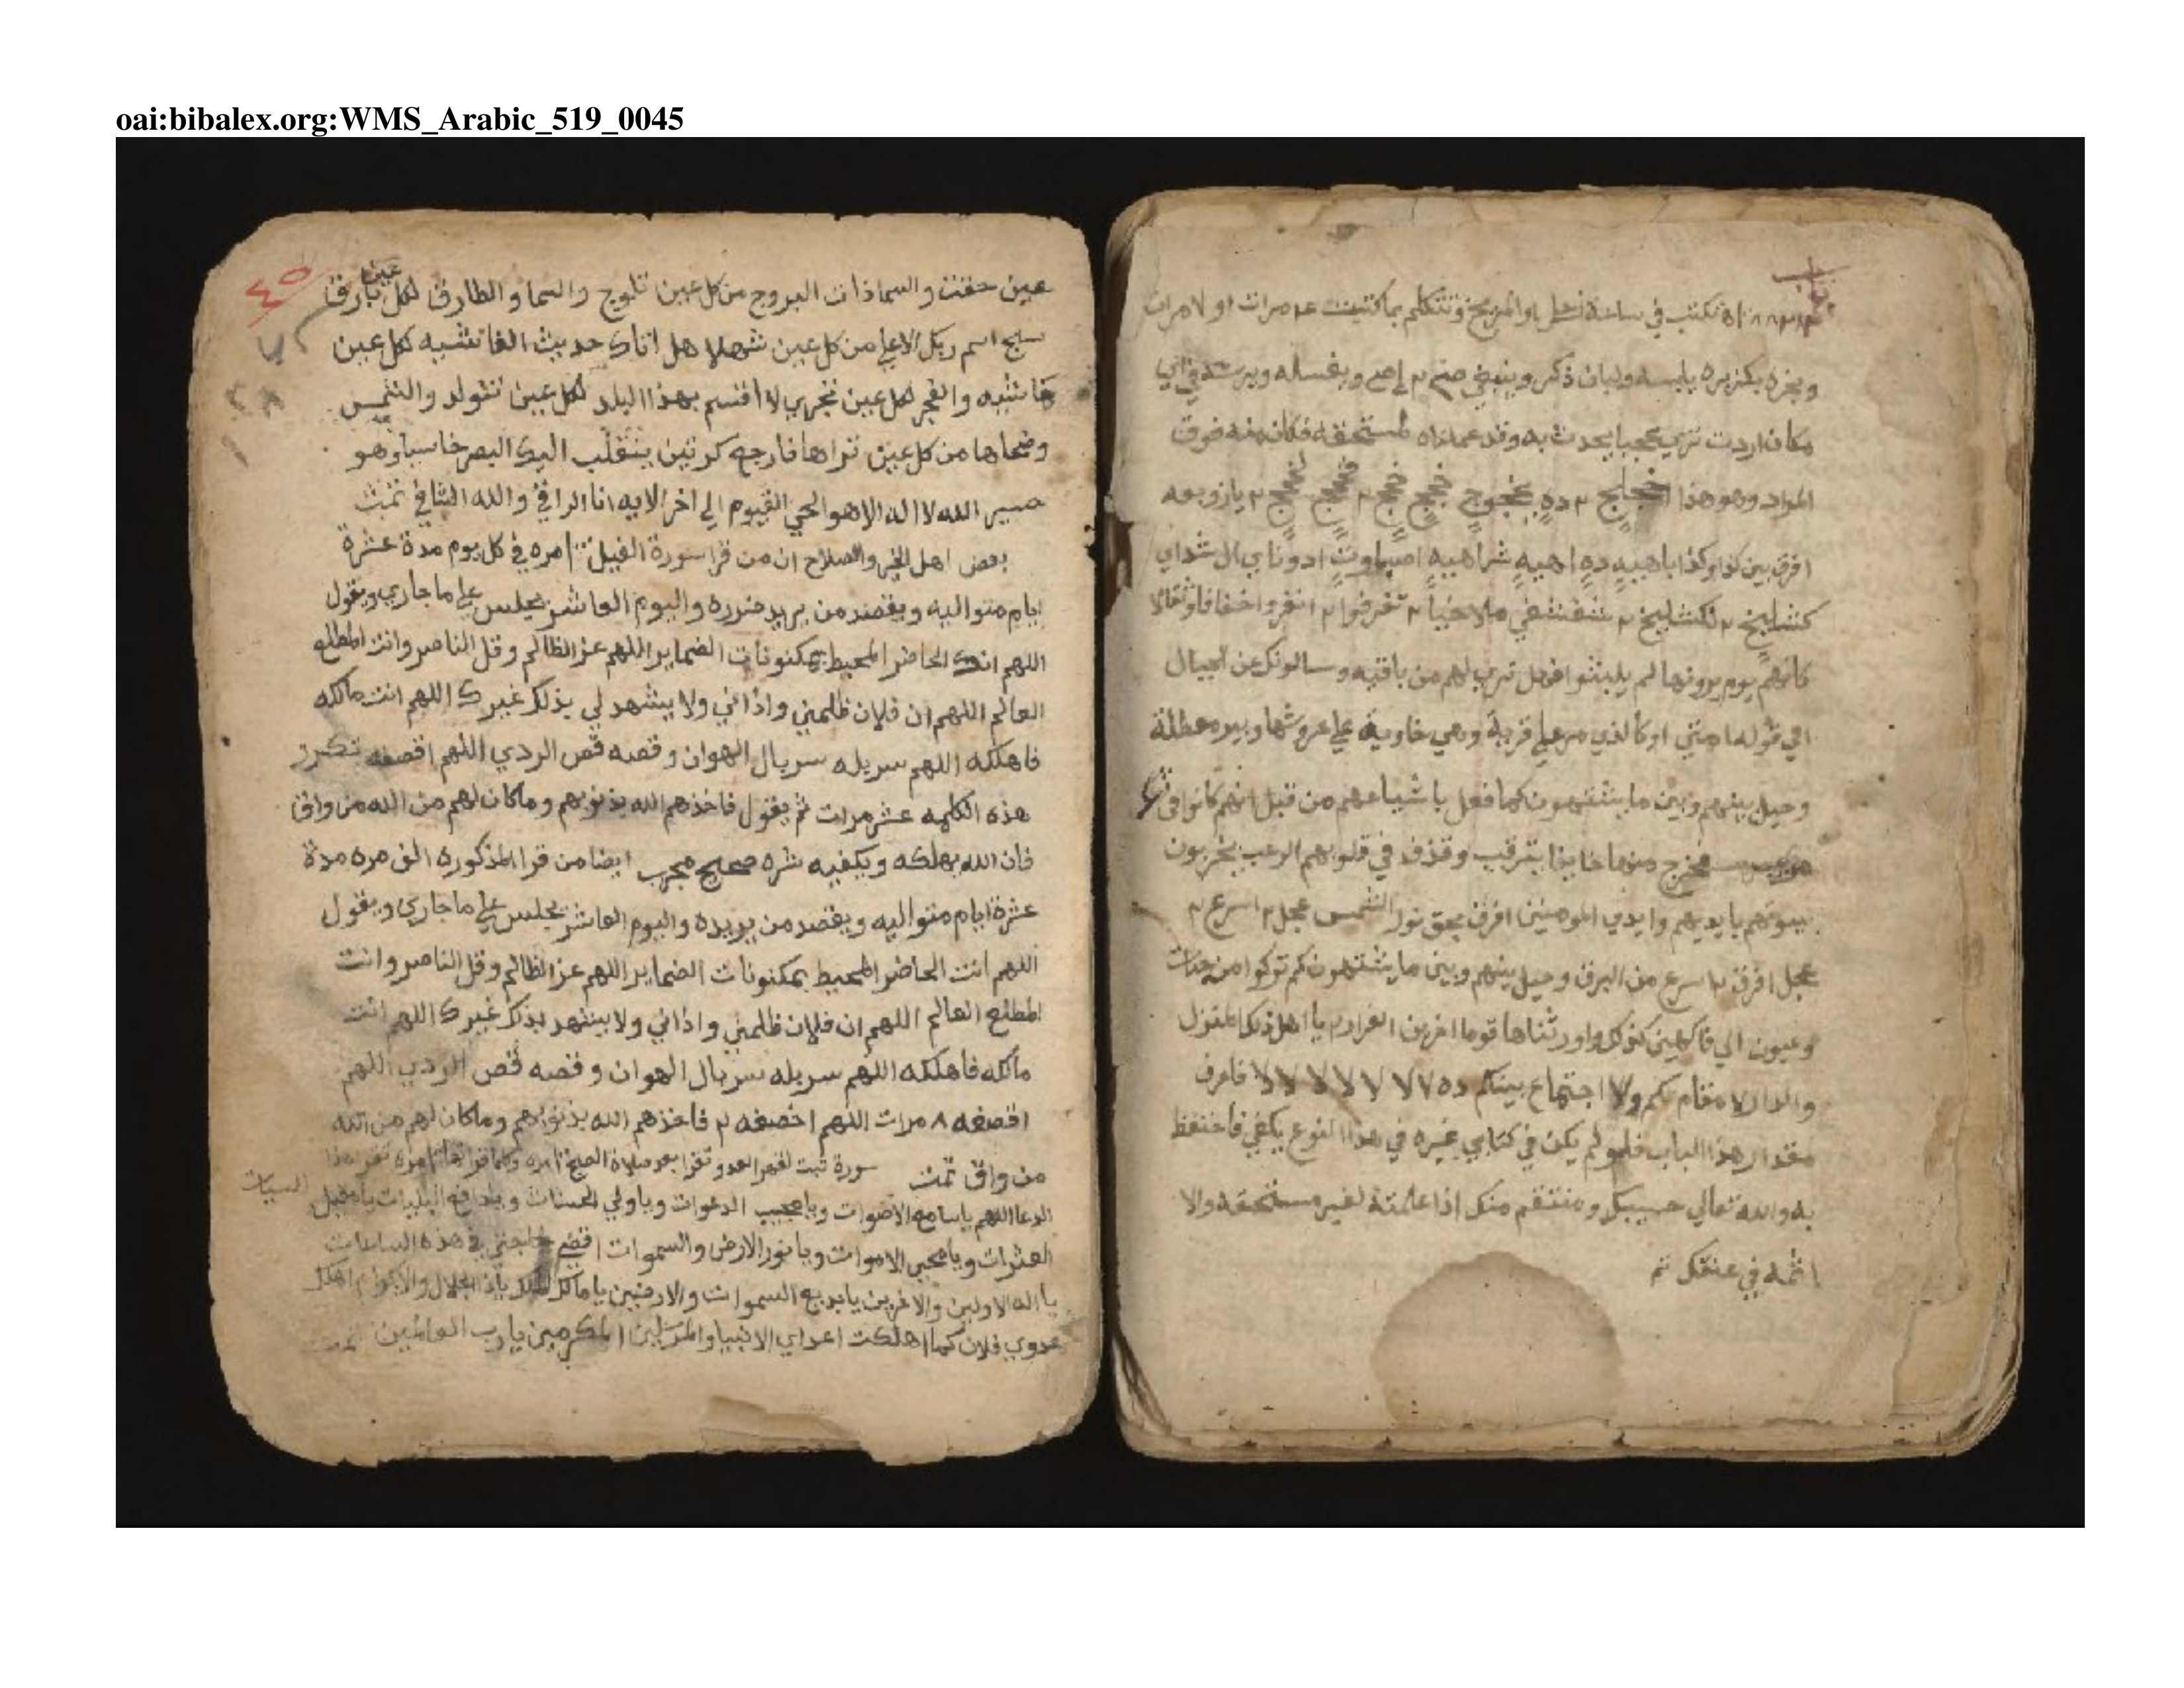 oai:bibalex.org:WMS_Arabic_519_0045
باب
تكتب في ساعة زحل او المريخ وتتكلم بما كتبت مرات او مرات
وبخره بكزبره يابسه ولبان ذكر ويغسله ويرشه في اي
مكان اردت تري عجبا يحدث به وقد عملناه لمستحقه فكان منه فوق
المراد وهو هذا يازوبعه
افرق بين كذا وكذا باهيه ده اهيه شراهيه اصباوت ادوناي ال شداي
كشليخ ٢ لكشليخ ٢ ٢ تفرقوا ٢ انفروا خفافا وثقالا
كانهم يوم يرونها لم يلبثوا فهل تري لهم من باقيه وسالونك عن الجبال
الي قوله امتي او كالذي مر علي قرية وهي خاوية علي عروشها وبير معطلة
وحيل بينهم وبين ما يشتهون كما فعل باشياعهم من قبل انهم كانوا في شك
فخرج منها خايفا يترقب وقذف في قلوبهم الرعب يخربون
بيوتهم بايديهم وايدي المومنين افرق بحق نور الشمس عجل ٢ اسرع ٢
عجل افرق ٢ اسرع من البرق وحيل بينهم وبين ما يشتهون كم تركوا من جنات
وعيون الي فاكهين كذلك واورثناها قوما اخرين الفرار ٢ يا اهل ذلك المنزل
والدار لا مقام لكم ولا اجتماع بينكم ده لا لا لا لا لا فاعرف
مقدار هذا الباب فلو لم يكن في كتابي غيره في هذا النوع يكفي فاحتفظ
به والله تعالي حسيبك ومنتقم منك اذا علمته لغير مستحقه والا
اثمه في عنقك تم
٤٥
عين حفت والسما ذات البروج من كل عين تلوج والسما والطارق لكل عين بارق
سبح اسم ربك الاعلي من كل عين شهلا هل اتاك حديث الغاشيه لكل عين
غاشيه والفجر لكل عين تجري لا اقسم بهذا البلد لكل عين تتولد والشمس
وضحاها من كل عين تراها فارجع كرتين ينقلب اليك البصر خاسيا وهو
حسير الله لا اله الا هو الحي القيوم الي اخر الايه انا الراقي والله الشافي تمت
بعض اهل الخير والصلاح ان من قرا سورة الفيل مره في كل يوم مدة عشرة
ايام متواليه ويقصد من يريد ضرره واليوم العاشر يجلس علي ما جاري ويقول
اللهم انك الحاضر المحيط بمكنونات الضماير اللهم عز الظالم وقل الناصر وانت المطلع
العالم اللهم ان فلان ظلمني واذاني ولا يشهد لي بذلك غيرك اللهم انت مالكه
فاهلكه اللهم سربله سربال الهوان وقصه قص الردي اللهم اقصفه تكرر
هذه الكلمه عشر مرات ثم يقول فاخذهم الله بذنوبهم وما كان لهم من الله من واق
فان الله يهلكه ويكفيه شره صحيح مجرب ايضا من قرا المذكوره الف مره مدة
عشرة ايام متواليه ويقصد من يريده واليوم العاشر يجلس علي ما جاري ويقول
اللهم انت الحاضر المحيط بمكنونات الضماير اللهم عز الظالم وقل الناصر وانت
المطلع العالم اللهم ان فلان ظلمني واذاني ولا يشهد بذلك غيرك اللهم انت
مالكه فاهلكه اللهم سربله سربال الهوان وقصه قص الردي اللهم
اقصفه ٨ مرات اللهم اخصفه ٢ فاخذهم الله بذنوبهم وما كان لهم من الله
من واق تمت سورة تبت لقهر العدو تقرا بعد صلاة الصبح مره وكلما قراتها مره تقرا هذا
الدعا اللهم يا سامع الاصوات ويا مجيب الدعوات ويا ولي الحسنات ويا دافع البليات يا مقيل السيات
العثرات ويا محيي الاموات ويا نور الارض والسموات اقضي حاجتي في هذه الساعات
يا اله الاولين والاخرين يا بديع السموات والارضين يا مالك الملك يا ذا الجلال والاكرام اهلك
عدوي فلان كما اهلكت اعداي الانبيا والمرسلين المكرمين يا رب العالمين تمت